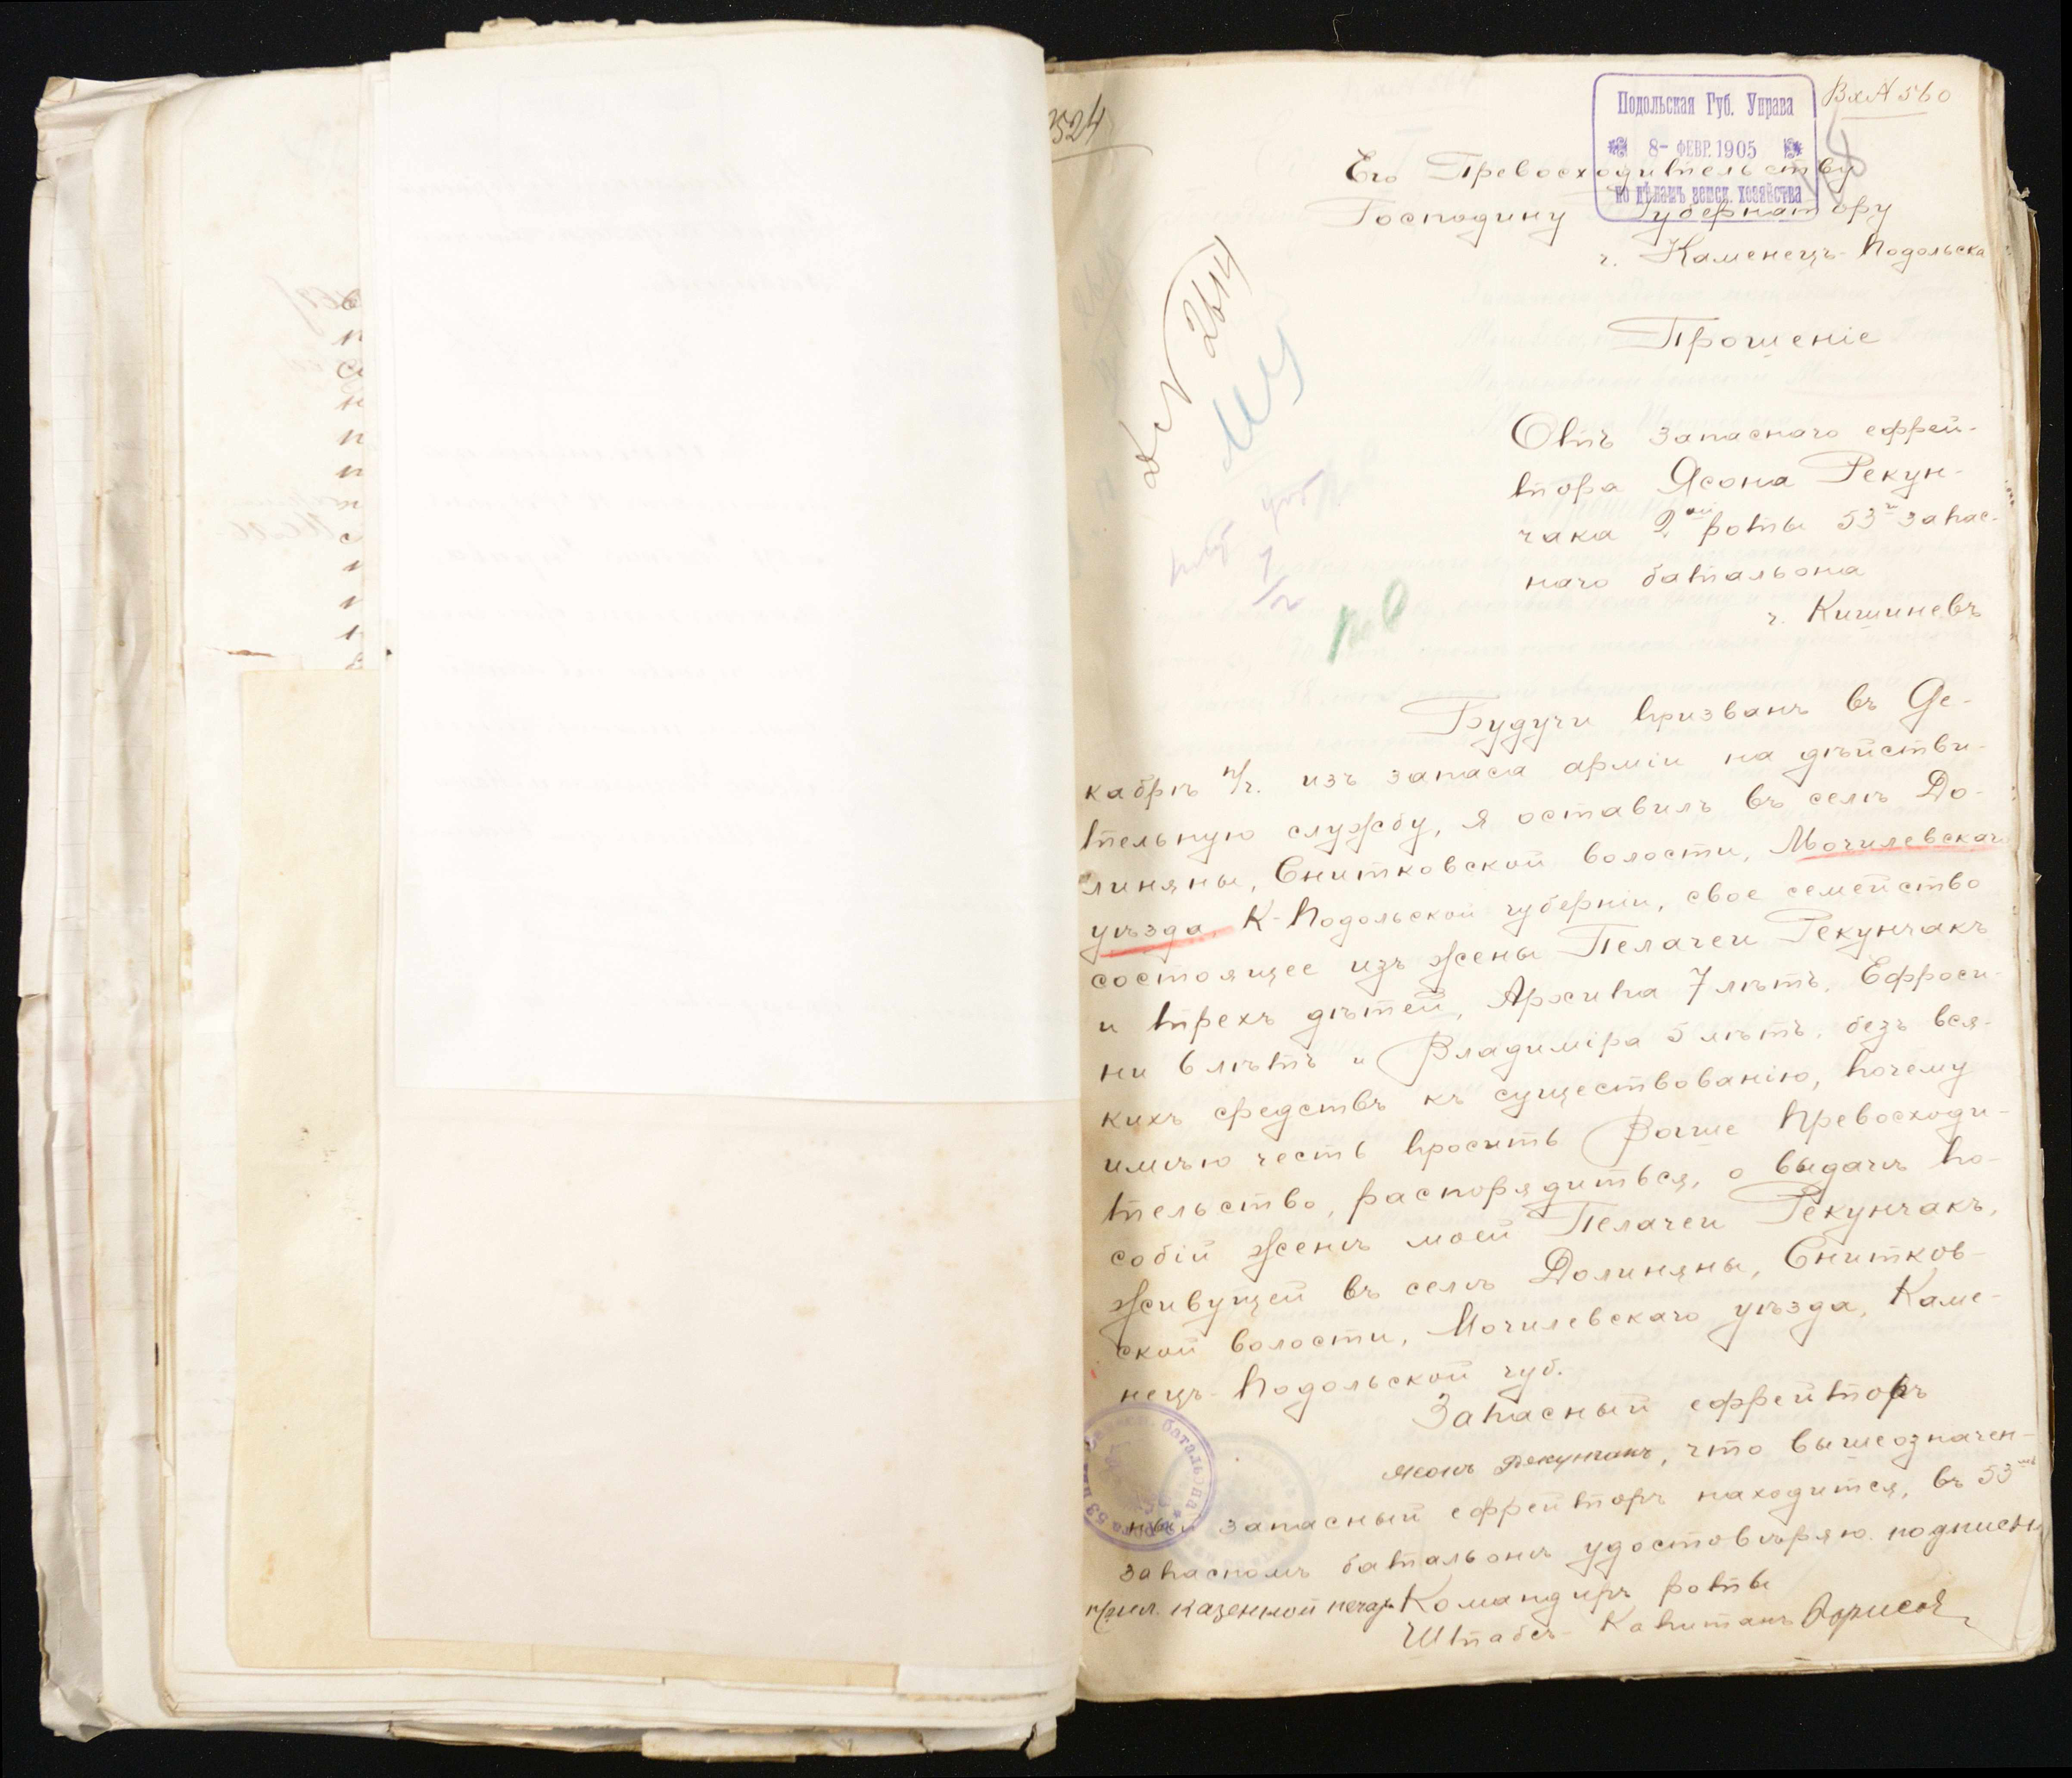 3524
Вх № 560
Подольская Губ. Управа
8- ФЕВР. 1905
по дѣламъ земск. хозяйства
Его Превосходительству
Господину Губернатору
г. Каменецъ-Подольска
2614
Прошеніе
Отъ запаснаго ефрей-
тора Ясона Рекун-
чака 2ой роты 53го запас-
наго батальона
г. Кишиневъ
Будучи призванъ въ Де-
кабрѣ п/г. изъ запаса арміи на дѣйстви-
тельную службу, я оставилъ въ селѣ До-
линяны, Снитковской волости, Могилевскаго
уѣзда, К-Подольской губерніи, свое семейство
состоящее изъ жены Пелагеи Рекунчакъ
и трехъ дѣтей, Архипа 7 лѣтъ, Ефроси-
ни 6 лѣтъ и Владиміра 5 лѣтъ, безъ вся-
кихъ средствъ къ существованію, почему
имѣю честь просить Ваше Превосходи-
тельство, распорядиться, о выдачѣ по-
собій женѣ моей Пелагеи Рекунчакъ,
живущей въ селѣ Долиняны, Снитков-
ской волости, Могилевскаго уѣзда, Каме-
нецъ-Подольской губ.
Запасный ефрейторъ
Ясонъ Рекунчакъ, что вышеозначен-
ный запасный ефрейторъ находится, въ 53мъ
запасномъ батальонѣ удостовѣряю подписью
прил. казенной печати Командиръ роты
Штабсъ-Капитанъ Борисовъ